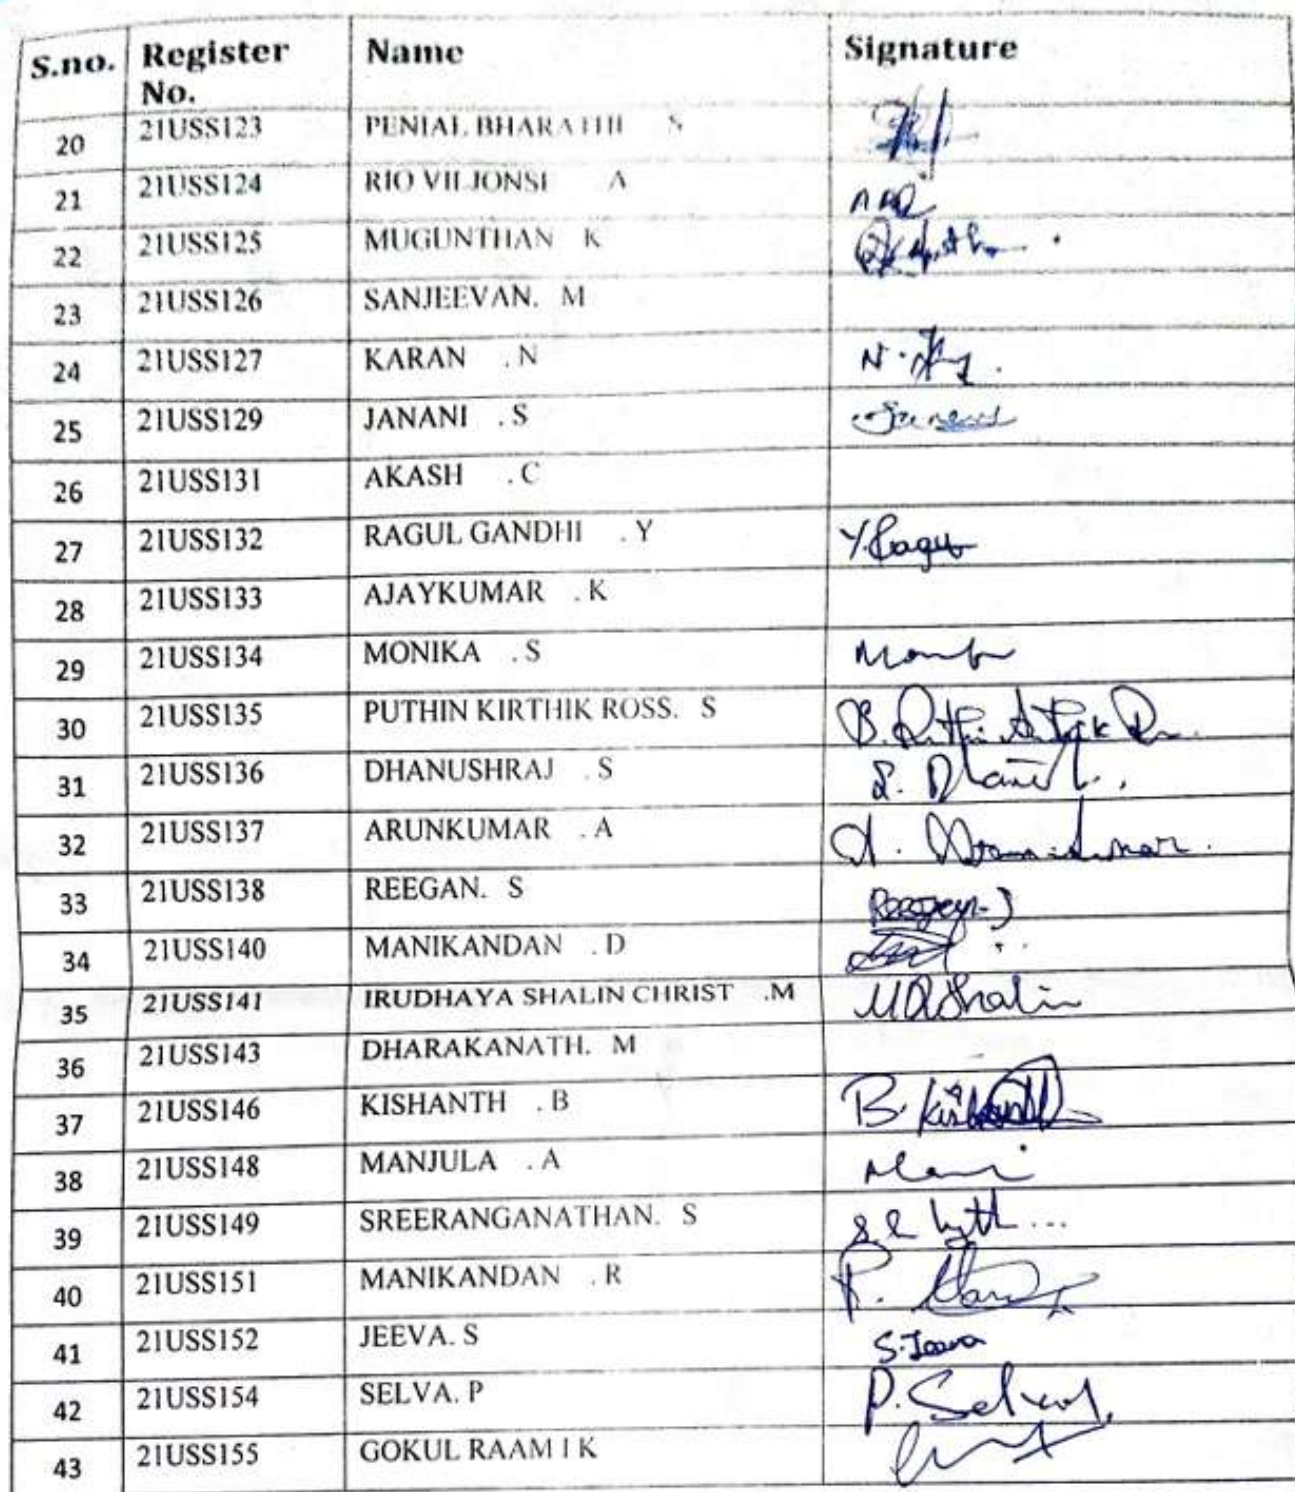 S.no. Register No. Name Signature
20 21USS123 PENIAL BHARATHI S
21 21USS124 RIO VILJONSI A
22 21USS125 MUGUNTHAN K
23 21USS126 SANJEEVAN. M
24 21USS127 KARAN .N N.
25 21USS129 JANANI .S
26 21USS131 AKASH .C
27 21USS132 RAGUL GANDHI .Y Y.Ragu
28 21USS133 AJAYKUMAR .K
29 21USS134 MONIKA .S
30 21USS135 PUTHIN KIRTHIK ROSS. S
31 21USS136 DHANUSHRAJ .S
32 21USS137 ARUNKUMAR .A
33 21USS138 REEGAN. S
34 21USS140 MANIKANDAN .D
35 21USS141 IRUDHAYA SHALIN CHRIST .M Shalin
36 21USS143 DHARAKANATH. M
37 21USS146 KISHANTH .B B.
38 21USS148 MANJULA .A
39 21USS149 SREERANGANATHAN. S
40 21USS151 MANIKANDAN .R
41 21USS152 JEEVA. S S.Jeeva
42 21USS154 SELVA. P P.
43 21USS155 GOKUL RAAM I K